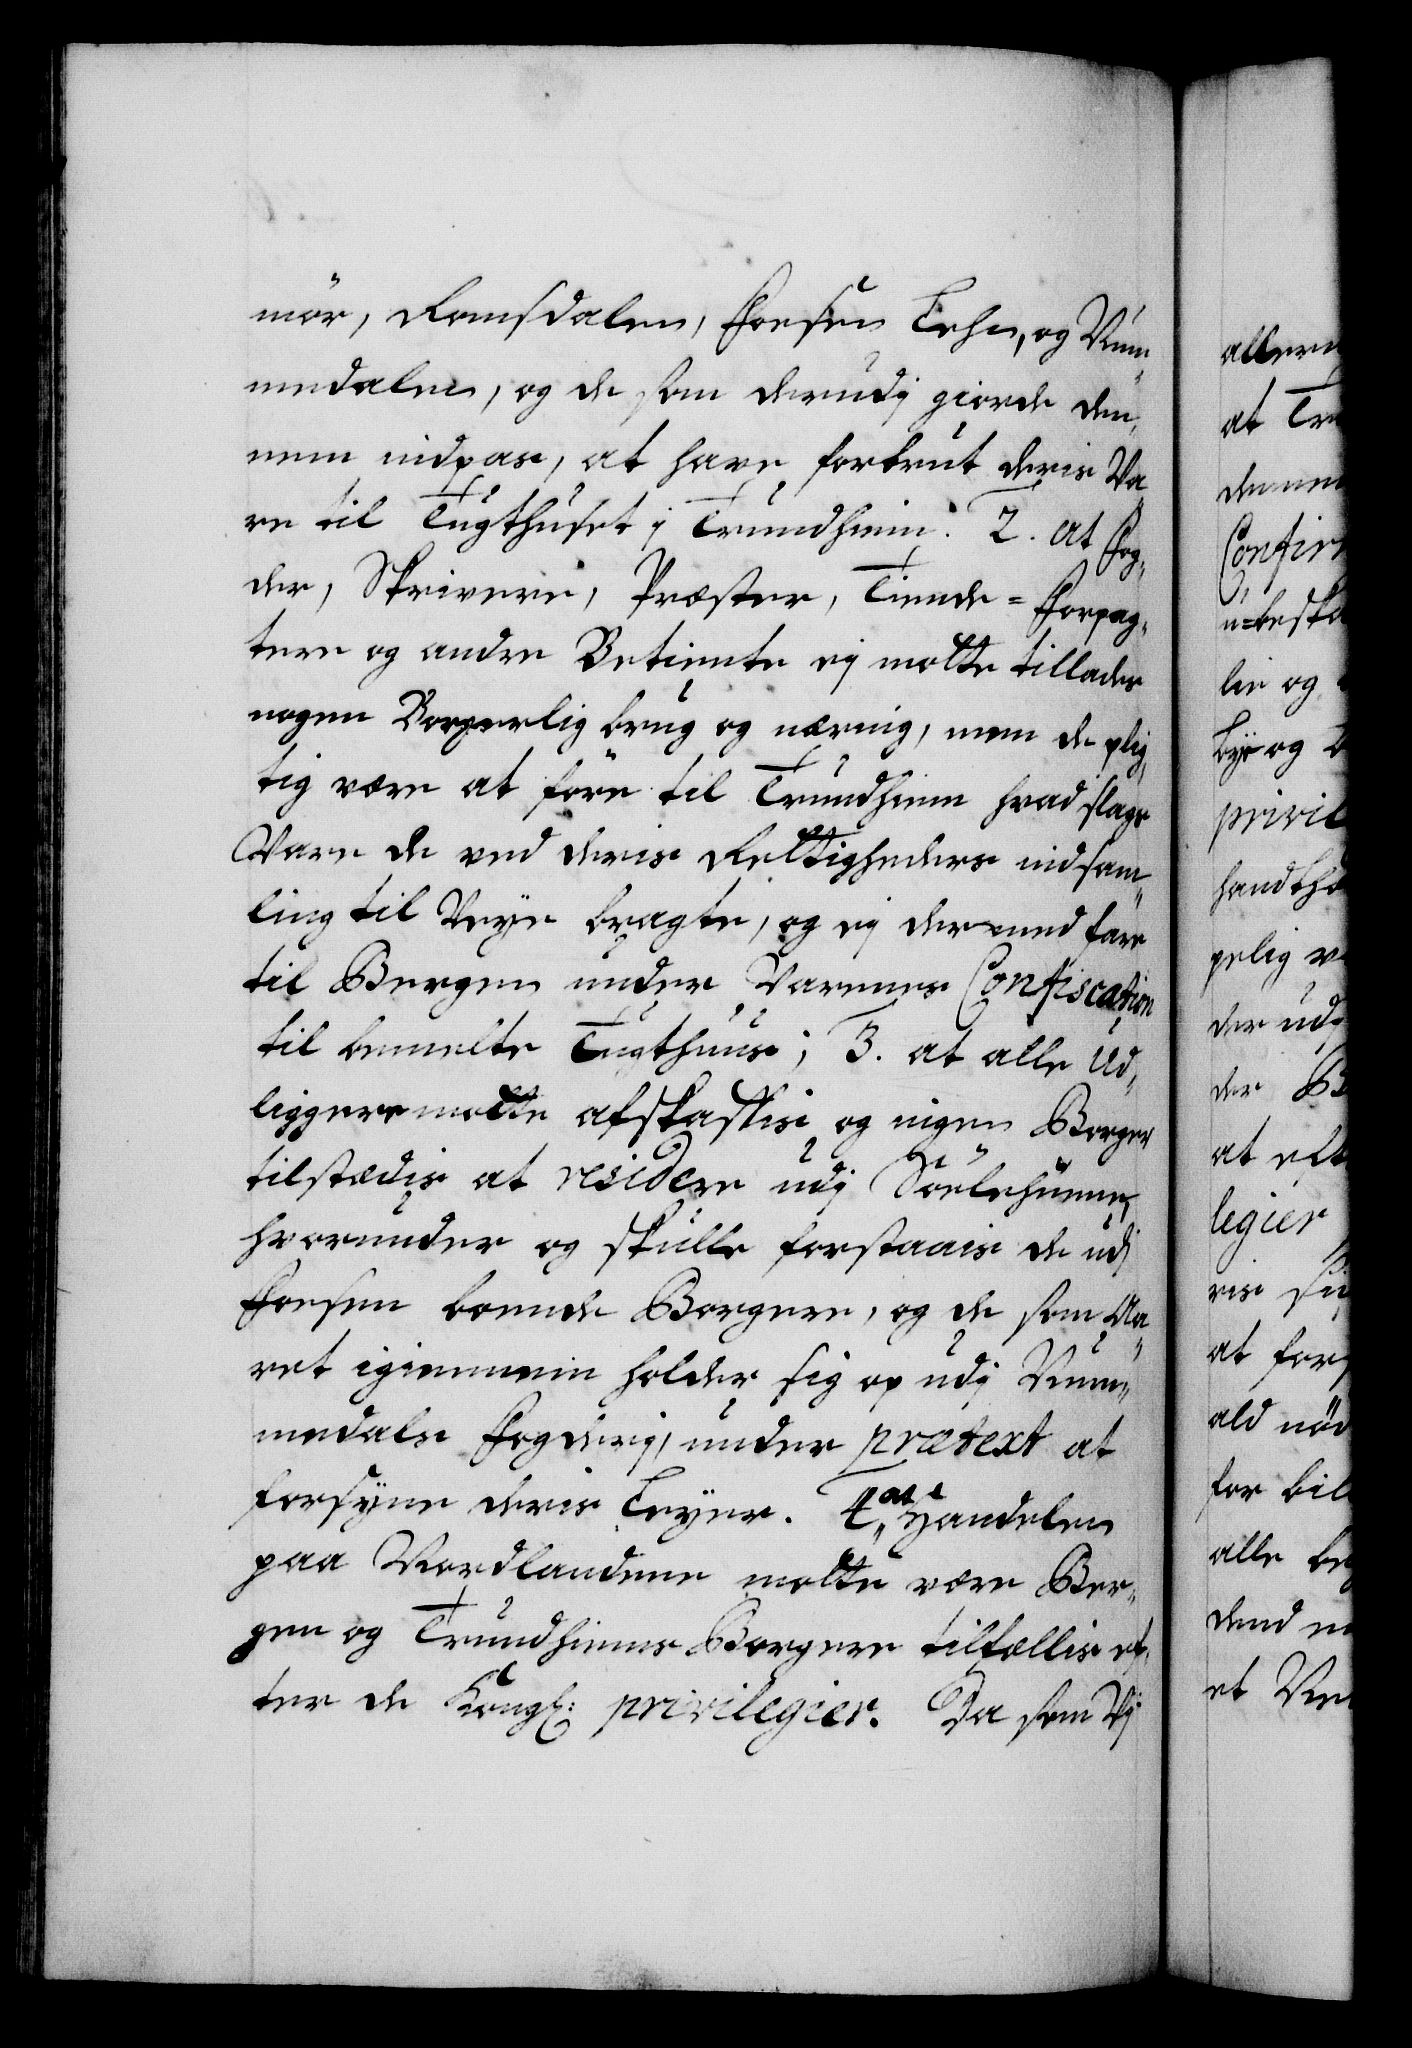 mör, Romsdalen, Fosen Lehn, og Num„
medalen, og de som derudj giorde den„
nem indpas, at have forbrut deris Va
re til Tugthuset i Trundhiem. 2. at Fog„
der, Skrivere, Præster, Tiende=Forpag„
tere og andre Betiente ej motte tillades
nogen Borgerlig brug og næring, men de plig„
tig være at före til Trundhiem hvad slags
Vare de ved deris Rettigheders indsam„
ling til Veye bragte, og ej dermed fare
til Bergen under Varenes Confiscation
til bemelte Tugthuus; 3. at alle Ud„
liggere motte afskaffis og ingen Borger
tilstædis at residere udj Söelehunne,
hvorunder og skulle forstaais de udj
Fosen boende Borgere, og de som Aa„
ret igiennem holder sig op udj Num„
medals Fogderij, under prætext at
forsyne deris Leyer. 4. at Handelen
paa Nordlandene motte være Ber„
gen og Trundhiems Borgere tilfællis ef„
ter de Kongl: privilegier. Da som Vj
allern
at Tru
dennem
Confir
u=beska
lie og
bye og b
privil
handthæ
pelig v
der udj
der B
at eft
legier
ris sig
at for
ald nöd
for bil
alle be
dend m
et Ve